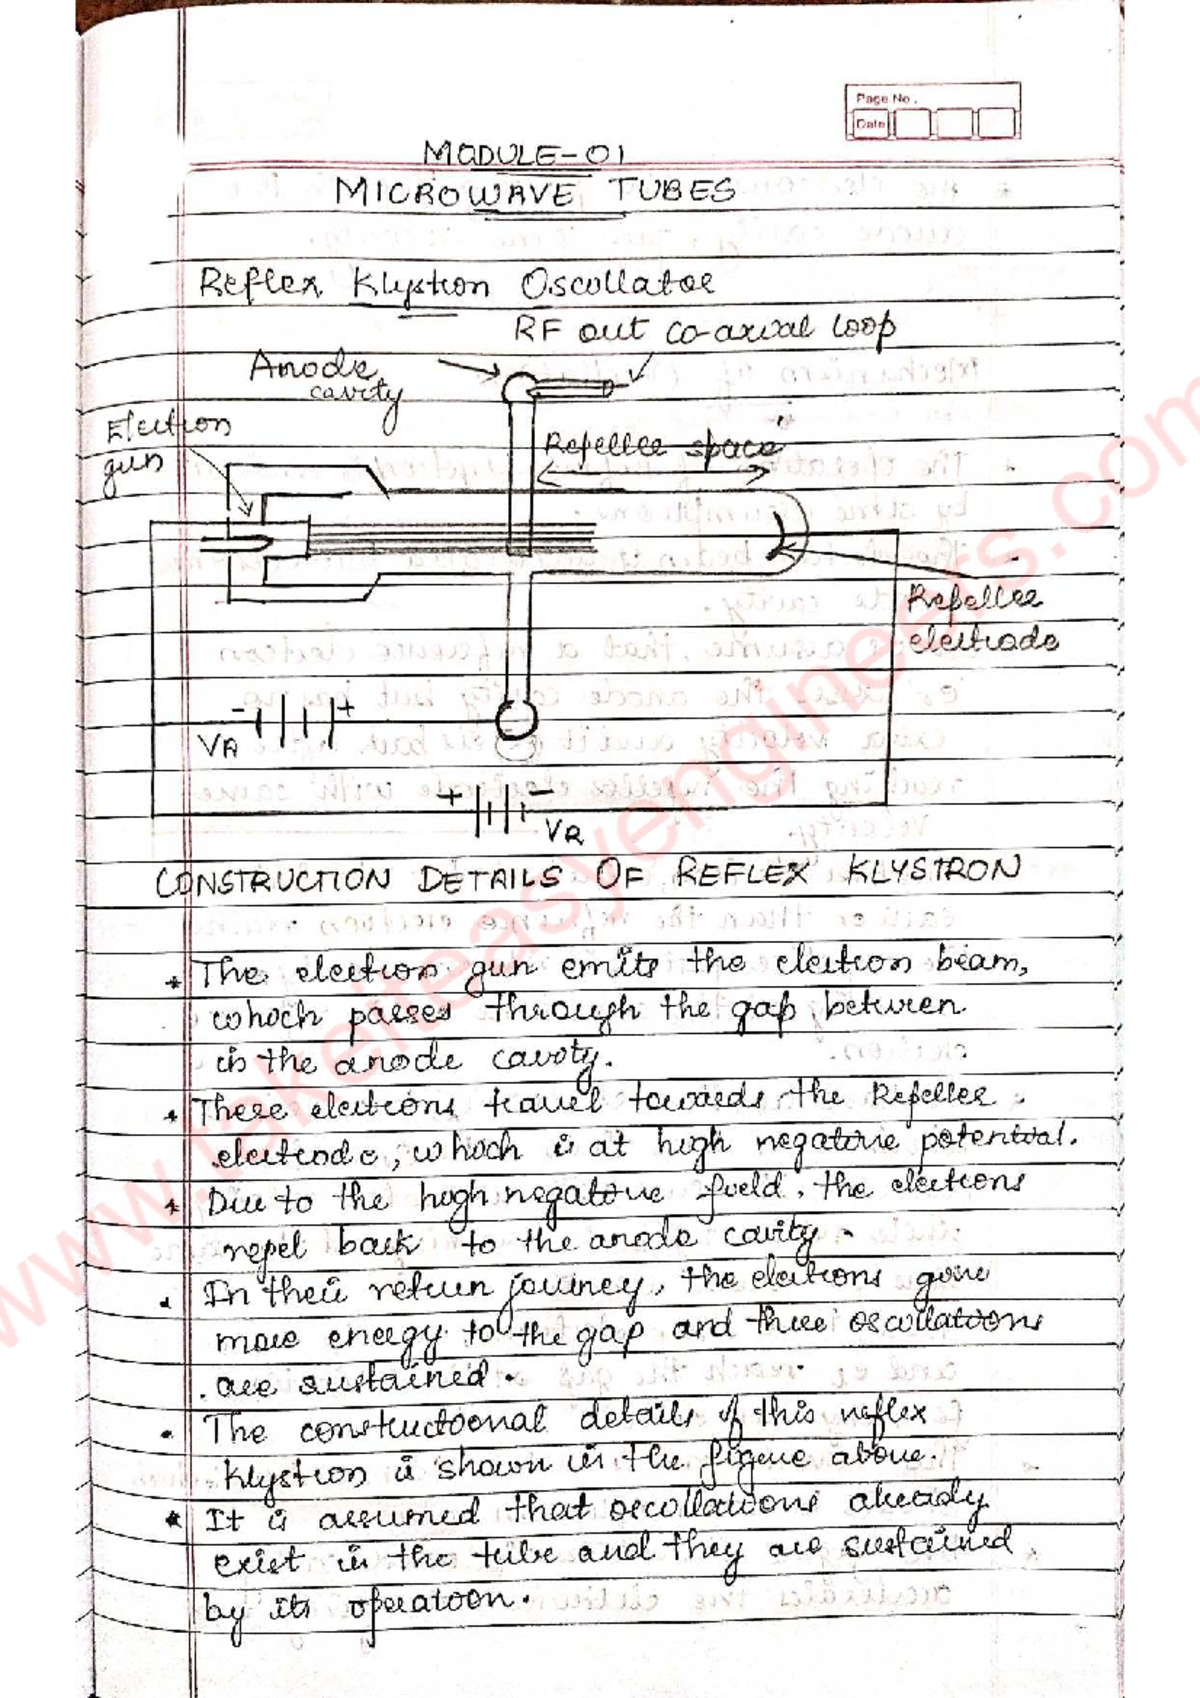 Page No.
Date
MODULE-01
MICROWAVE TUBES
Reflex Klystron Oscillator
RF out co-axial loop
Anode
cavity
Electron
gun
Repeller space
Repeller
electrode
- +
VA
+ -
VR
CONSTRUCTION DETAILS OF REFLEX KLYSTRON
* The electron gun emits the electron beam,
which passes through the gap between
in the anode cavity.
* These electrons travel towards the Repeller
electrode, which is at high negative potential.
* Due to the high negative field, the electrons
repel back to the anode cavity.
. In their return journey, the electrons give
more energy to the gap and these oscillations
are sustained.
. The constructional details of this reflex
klystron is shown in the figure above.
* It is assumed that oscillations already
exist in the tube and they are sustained
by its operation.
www.takeiteasyengineers.com